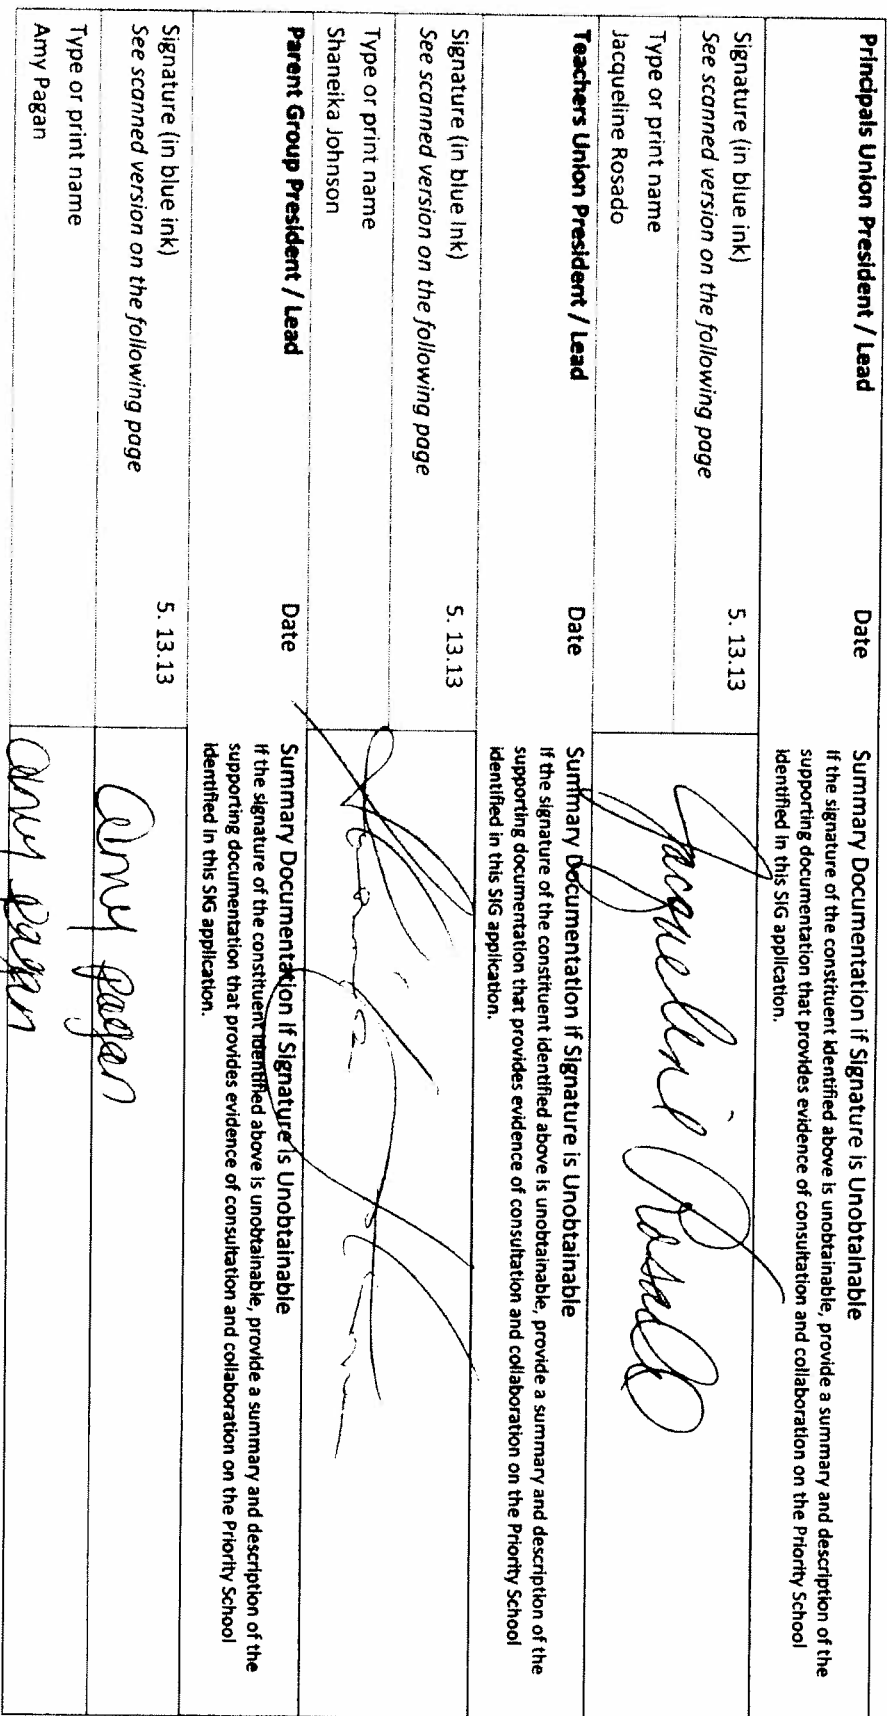 Principals Union President / Lead Date
Summary Documentation if Signature is Unobtainable
If the signature of the constituent identified above is unobtainable, provide a summary and description of the
supporting documentation that provides evidence of consultation and collaboration on the Priority School
identified in this SIG application.
Signature (in blue ink)
See scanned version on the following page
5. 13.13
Type or print name
Jacqueline Rosado
Jacqueline Rosado
Teachers Union President / Lead Date
Summary Documentation if Signature is Unobtainable
If the signature of the constituent identified above is unobtainable, provide a summary and description of the
supporting documentation that provides evidence of consultation and collaboration on the Priority School
identified in this SIG application.
Signature (in blue ink)
See scanned version on the following page
5. 13.13
Type or print name
Shaneika Johnson
Parent Group President / Lead Date
Summary Documentation if Signature is Unobtainable
If the signature of the constituent identified above is unobtainable, provide a summary and description of the
supporting documentation that provides evidence of consultation and collaboration on the Priority School
identified in this SIG application.
Signature (in blue ink)
See scanned version on the following page
5. 13.13
Amy Pagan
Type or print name
Amy Pagan
Amy Pagan